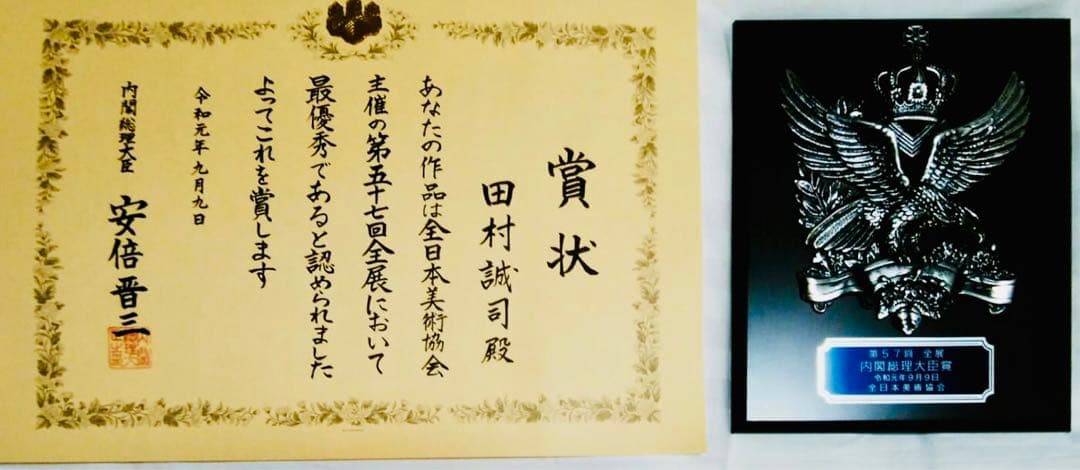 賞状
田村誠司殿
あなたの作品は全日本美術協会
主催の第五十七回全展において
最優秀であると認められました
よってこれを賞します
令和元年九月九日
内閣総理大臣 安倍晋三
第57回 全展
内閣総理大臣賞
令和元年9月9日
全日本美術協会